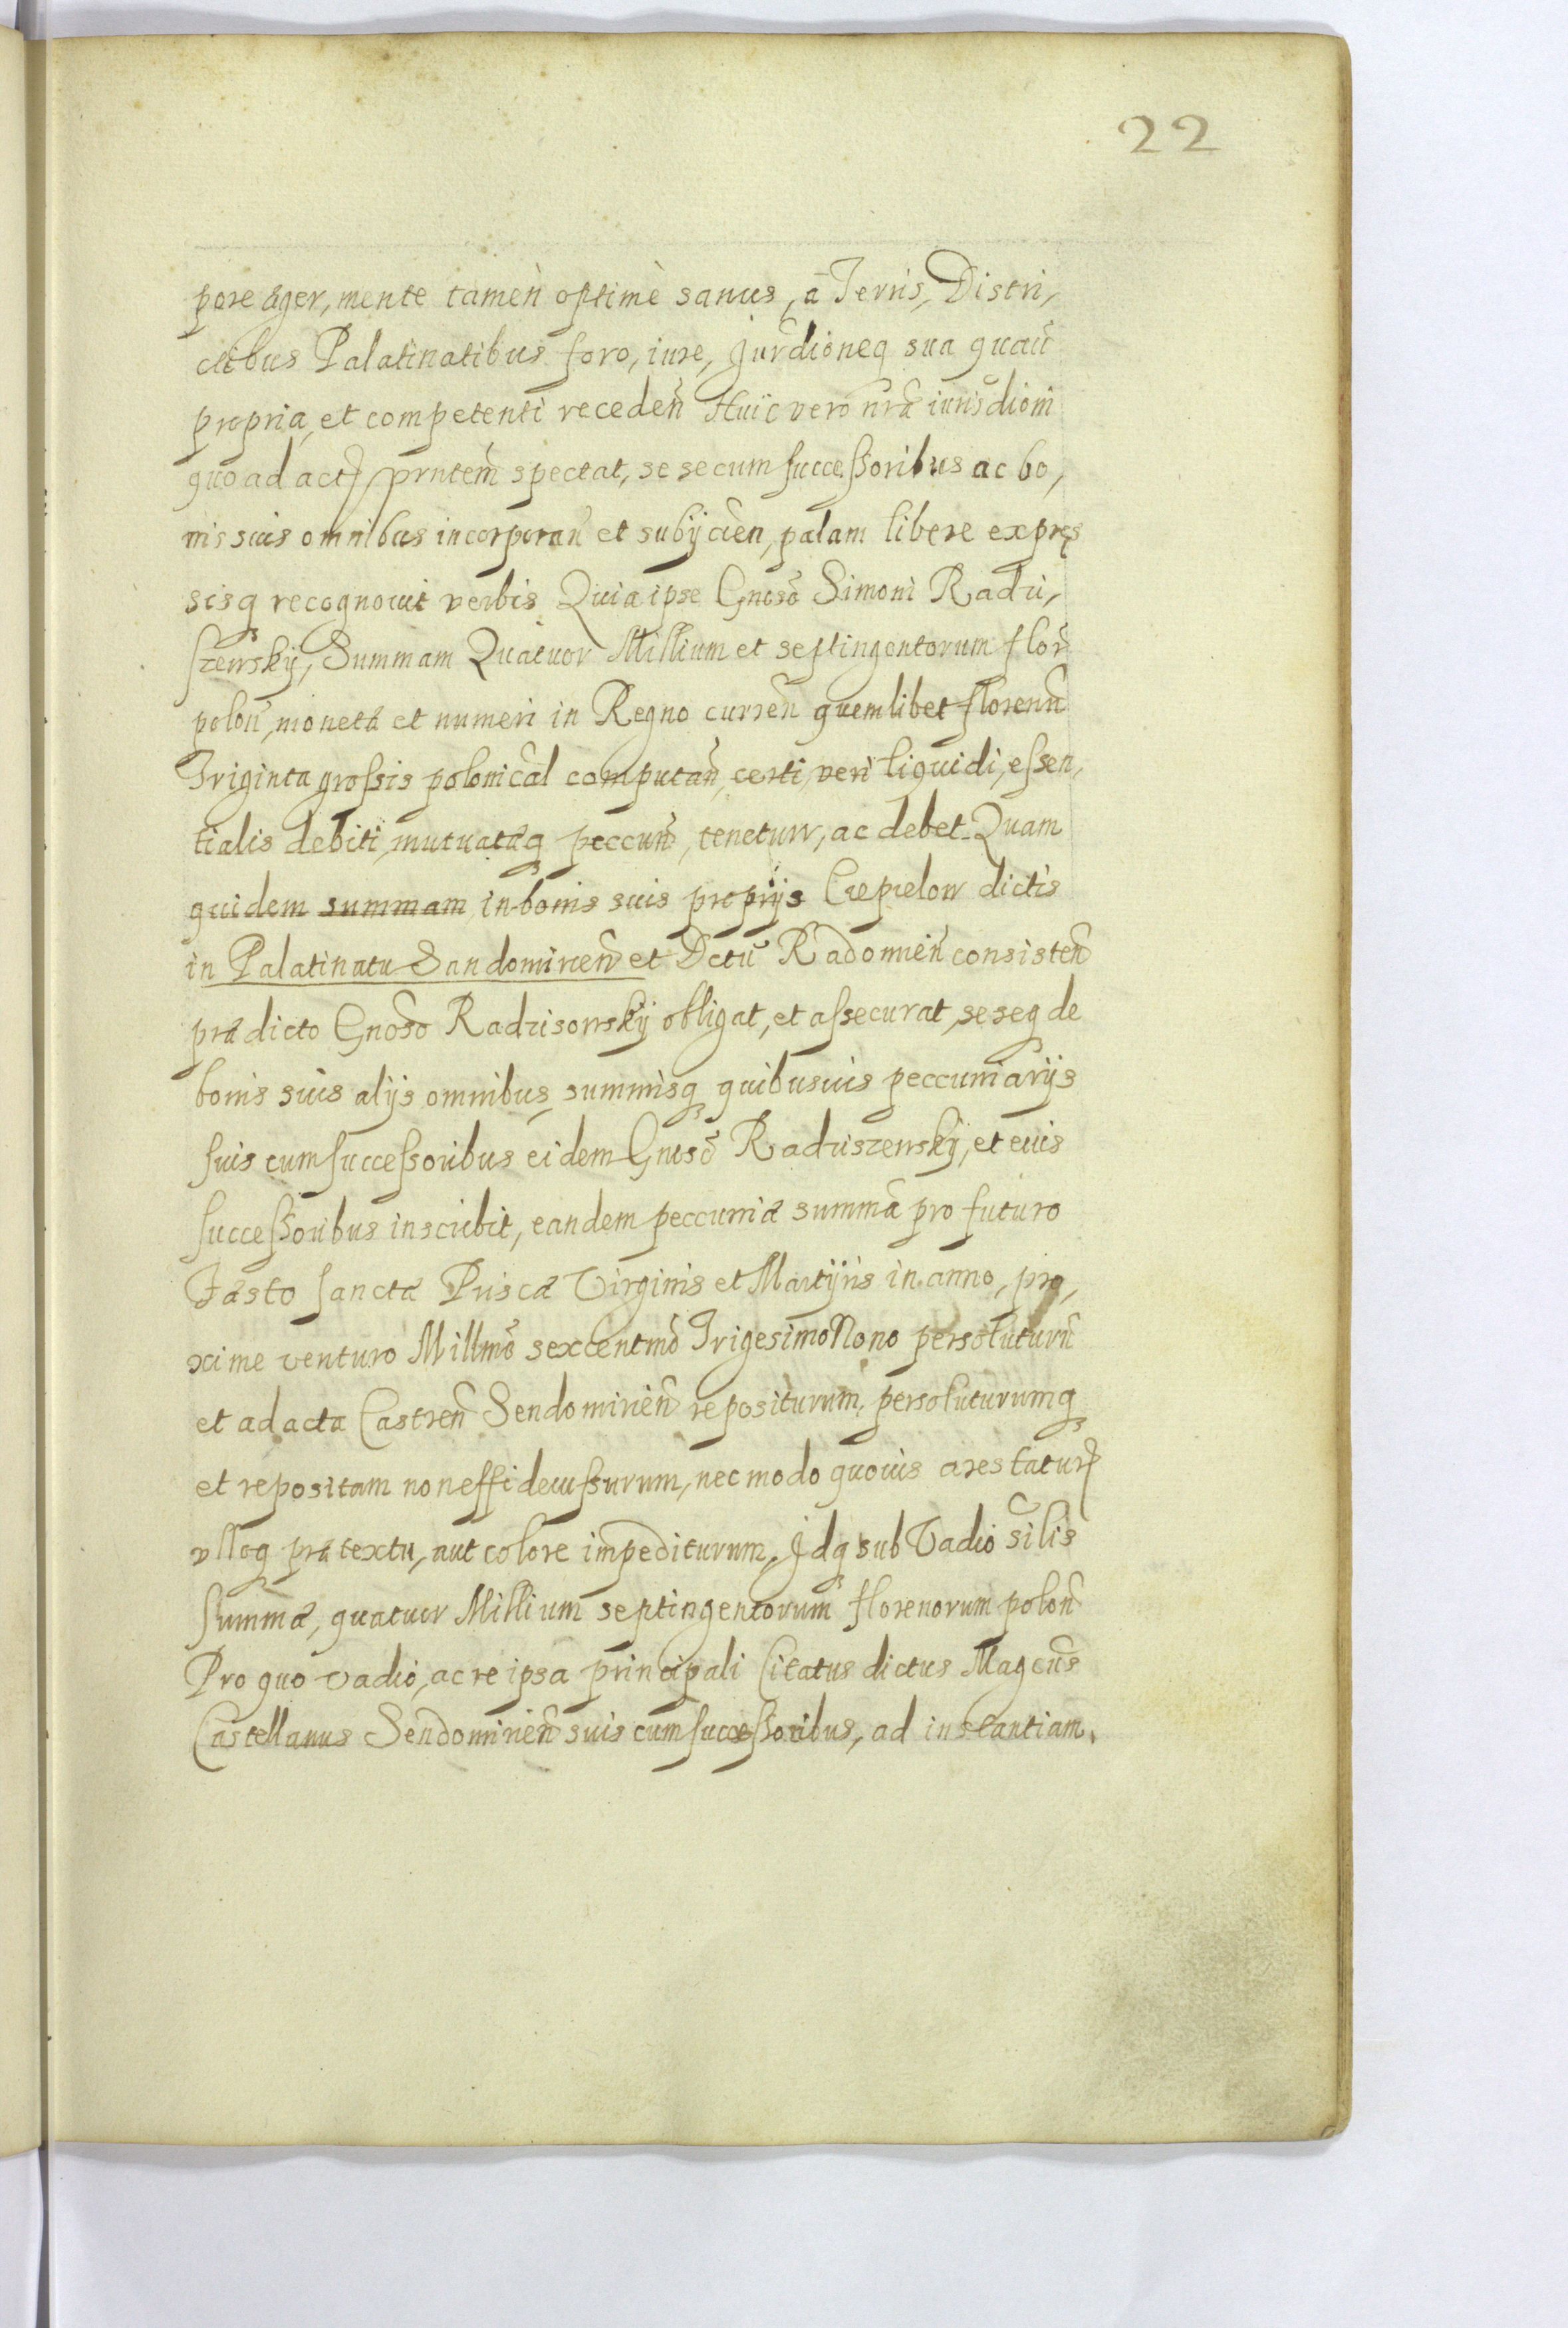 22
pore æger, mente tamen optimè sanus, à Terris, Distri,
ctibus Palatinatibus foro, iure, Jurdioneq sua quau
propria, et competenti receden̄ Huic vero nr̄a iurisdioni
quo ad act prn̄tem spectat, se se cum successoribus ac bo,
nis suis omnibus incorporan̄ et subijcien, palam libere expręs
sisq recognouit verbis Quia ipse Gnoso Simoni Radzi,
szewskij, Summam Quatuor Millium et septingentorum flor̄
polon̄, monetæ et numeri in Regno curren̄ quemlibet florenū
Triginta grossis polonical computan̄, certi, veri liquidi, essen,
tialis debiti, mutuatæq peccun̄, tenetur, ac debet Quam
quidem summam in bonis suis proprijs Ciepielow dictis
in Palatinatu Sandomirien̄ et Dctu Radomien̄ consisten̄
prædicto Gnoso Radzisowskij obligat, et assecurat, seseq de
bonis suis alijs omnibus, summisq quibusuis peccuniarijs
suis cum successoribus eidem Gnoso Radziszewskij, et euis
successoribus inscribit, eandem peccuniæ summā pro futuro
Fæsto sanctæ Priscæ Virginis et Martijris in anno, pro,
xime venturo Millmo sexcentmo Trigesimo Nono persoluturū
et ad acta Castren̄ Sendomirien̄ repositurum, persoluturumq
et repositam non effidecussurum, nec modo quouis arestatur
vlloq prætextu, aut colore impediturum, Jdq sub Vadio silis
summæ, quatuor Millium septingentorum florenorum polon̄
Pro quo vadio, ac re ipsa principali Citatus dictus Magcus
Castellanus Sendomirien̄ suis cum successoribus, ad instantiam.